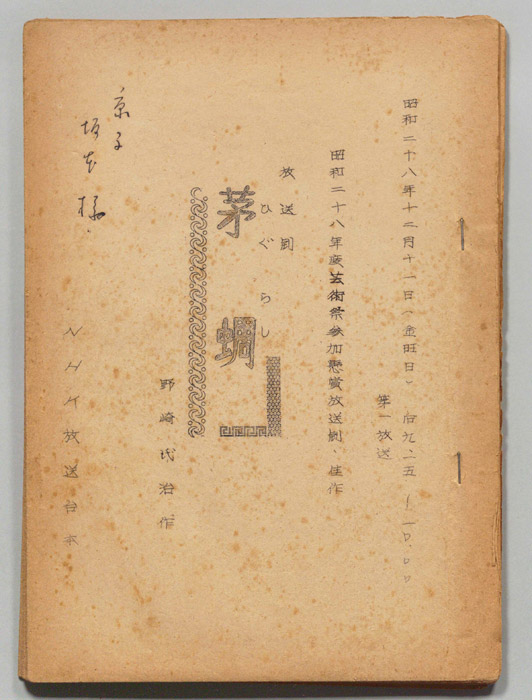 昭和二十八年十二月十一日(金曜日) 后九.一五―一〇.〇〇
第一放送
昭和二十八年度芸術祭参加懸賞放送劇、佳作
放送劇
ひぐらし
茅蜩
野崎 治作
NHK放送台本
京子
坂本様